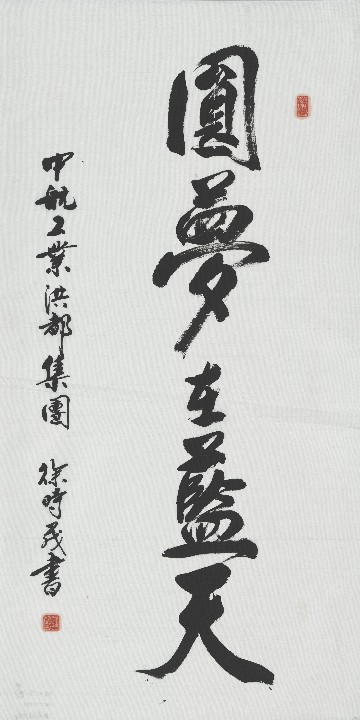 圓夢在藍天
中航工業洪都集團 徐時茂書